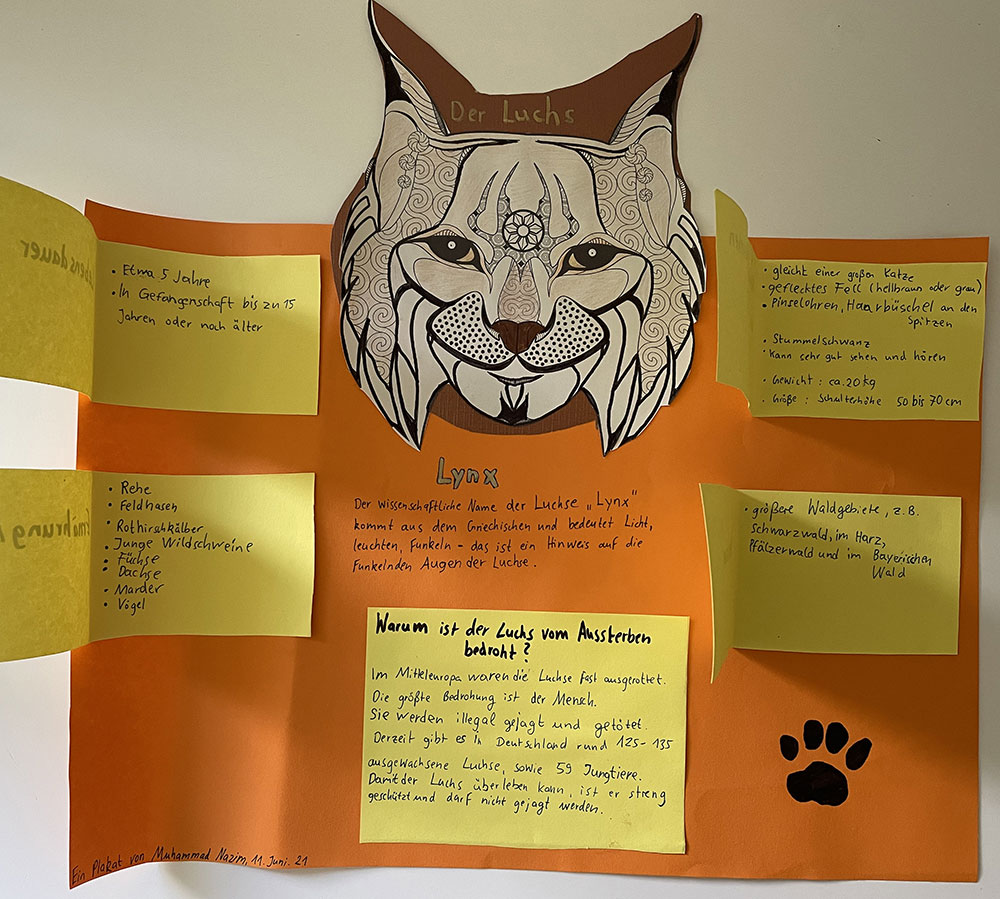 Der Luchs
• Etwa 5 Jahre
• In Gefangenschaft bis zu 15
Jahren oder noch älter
• gleicht einer großen Katze
• geflecktes Fell (hellbraun oder grau)
• Pinselohren, Haarbüschel an den
Spitzen
• Stummelschwanz
• Kann sehr gut sehen und hören
• Gewicht : ca. 20 kg
• Größe : Schulterhöhe 50 bis 70 cm
• Rehe
• Feldhasen
• Rothirschkälber
• Junge Wildschweine
• Füchse
• Dachse
• Marder
• Vögel
Lynx
Der wissenschaftliche Name der Luchse „Lynx"
kommt aus dem Griechischen und bedeutet Licht,
leuchten, Funkeln - das ist ein Hinweis auf die
Funkelnden Augen der Luchse.
• größere Waldgebiete, z.B.
Schwarzwald, im Harz,
Pfälzerwald und im Bayerischen
Wald
Warum ist der Luchs vom Aussterben
bedroht?
Im Mitteleuropa waren die Luchse fast ausgerottet.
Die größte Bedrohung ist der Mensch.
Sie werden illegal gejagt und getötet.
Derzeit gibt es in Deutschland rund 125-135
ausgewachsene Luchse, sowie 59 Jungtiere.
Damit der Luchs überleben kann, ist er streng
geschützt und darf nicht gejagt werden.
Ein Plakat von Muhammad Nazim, 11. Juni. 21